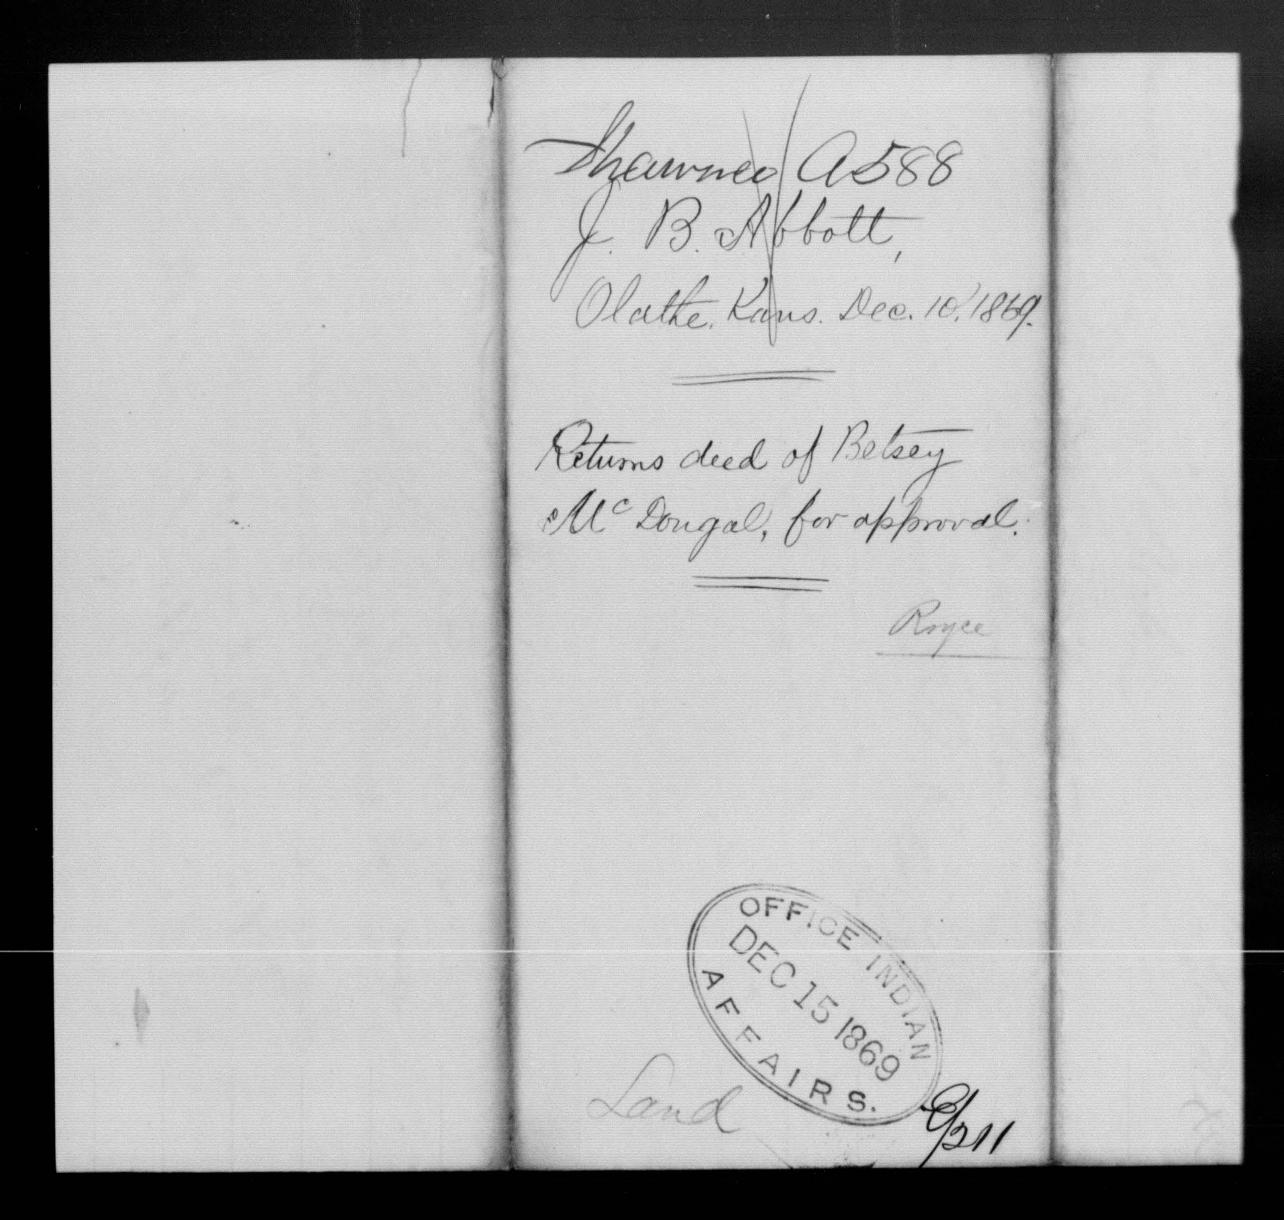 Shawnee A588
J. B. Abbott,
Olathe, Kans. Dec. 10, 1869.
Returns deed of Betsey
McDougal, for approval.
Royce
OFFICE INDIAN
DEC 15 1869
AFFAIRS.
Land